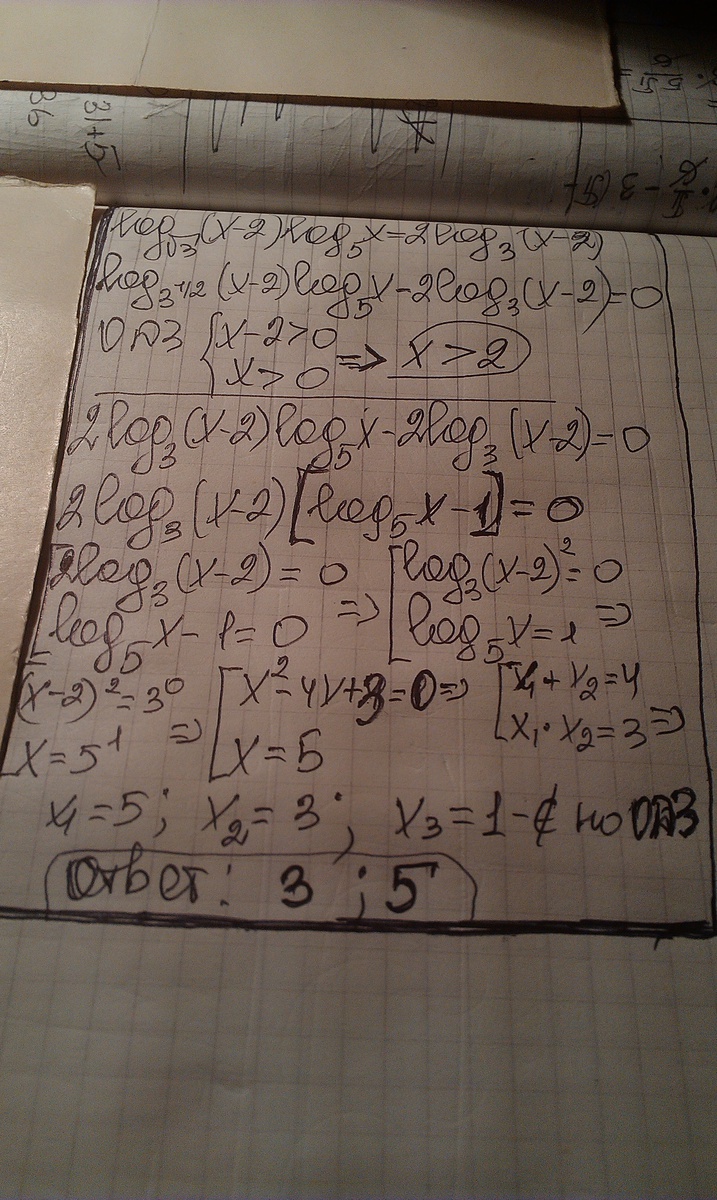 =31+5
36
log√3 (x-2) log5 x = 2 log3 (x-2)
log3^1/2 (x-2) log5 x - 2 log3 (x-2) = 0
ОДЗ { x-2>0
x>0 => x>2
2 log3 (x-2) log5 x - 2 log3 (x-2) = 0
2 log3 (x-2) [log5 x - 1] = 0
[ 2 log3 (x-2) = 0 => [ log3 (x-2)² = 0
log5 x - 1 = 0 log5 x = 1 =>
(x-2)² = 3⁰ => [ x² - 4x + 3 = 0 => [ x1 + x2 = 4
x = 5¹ x = 5 x1 · x2 = 3 =>
x1 = 5; x2 = 3; x3 = 1 - ∉ по ОДЗ
Ответ: 3 ; 5